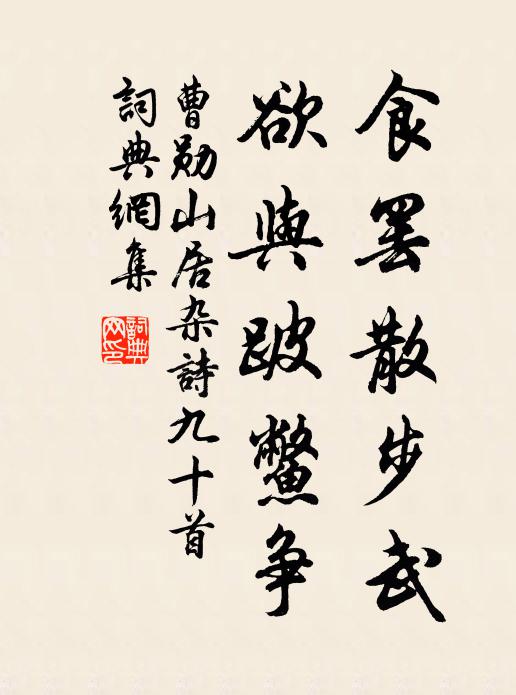 食罢散步武
欲與跛鱉争
曹勋山居杂詩九十首
詞典網集
詞典
网印